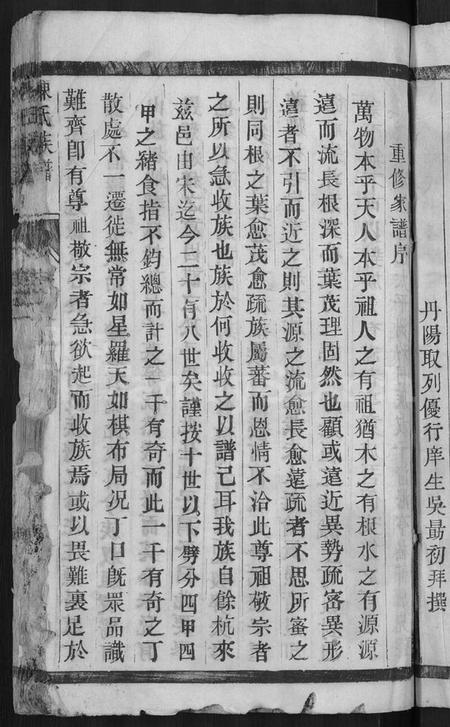 丹陽取列優行庠生吳最初拜撰
重修家譜序
萬物本乎天人本乎祖人之有祖猶木之有根水之有源源
遠而流長根深而葉茂理固然也顧或遠近異勢疏密異形
遠者不引而近之則其源之流愈長愈遠疏者不思所蜜之
則同根之葉愈茂愈疏族屬蕃而恩情不洽此尊祖敬宗者
之所以急收族也族於何收收之以譜己耳我族自餘杭來
茲邑由宋迄今二十有八世矣謹按十世以下劈分四甲四
甲之豬食指不鈞總而計之一千有奇而此一千有奇之丁
散處不一遷徙無常如星羅天如棋布局況丁口既眾品識
難齊卽有尊祖敬宗者急欲起而收族焉或以畏難裹足於
陳氏族譜